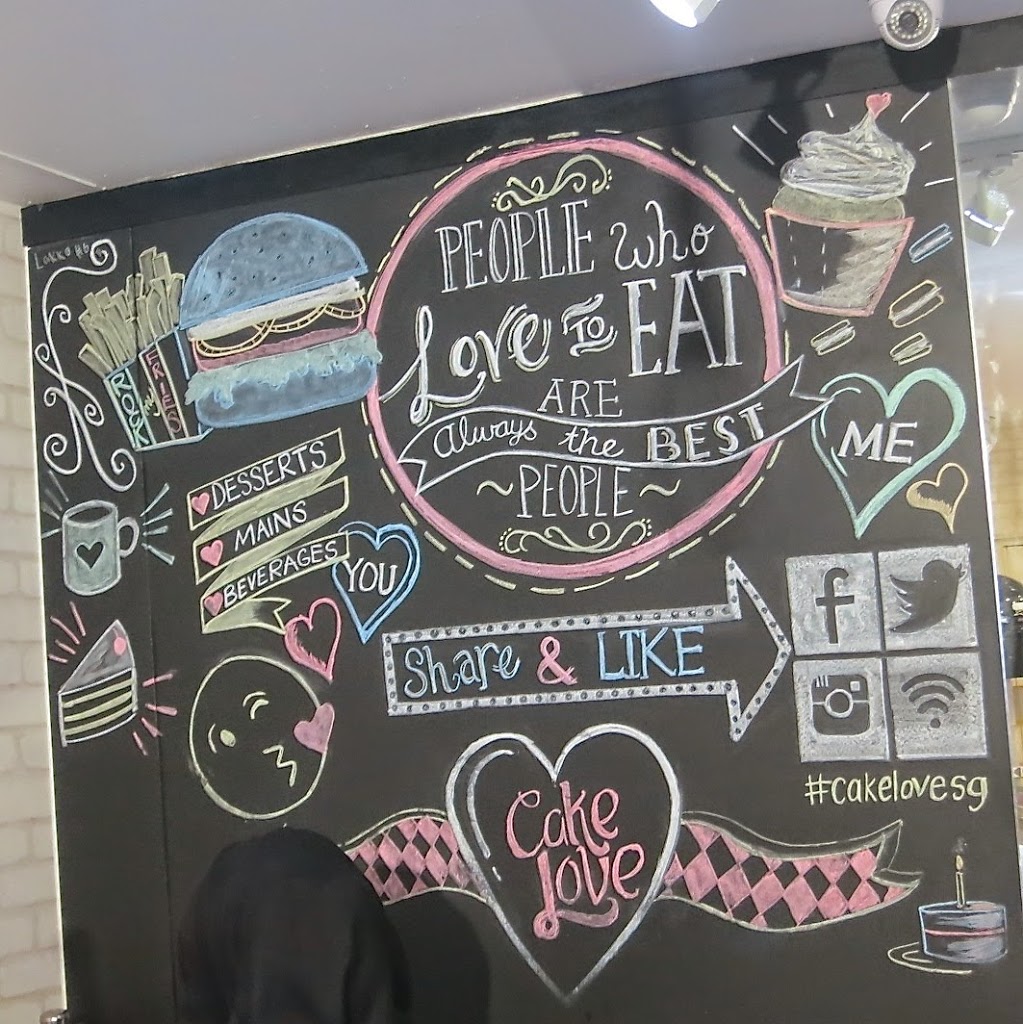 PEOPLE who
Love TO EAT
ARE
always the BEST
~PEOPLE~
ROCK
my
FRIES
DESSERTS
MAINS
BEVERAGES
YOU
ME
Share & LIKE
f
#cakelovesg
Cake
Love